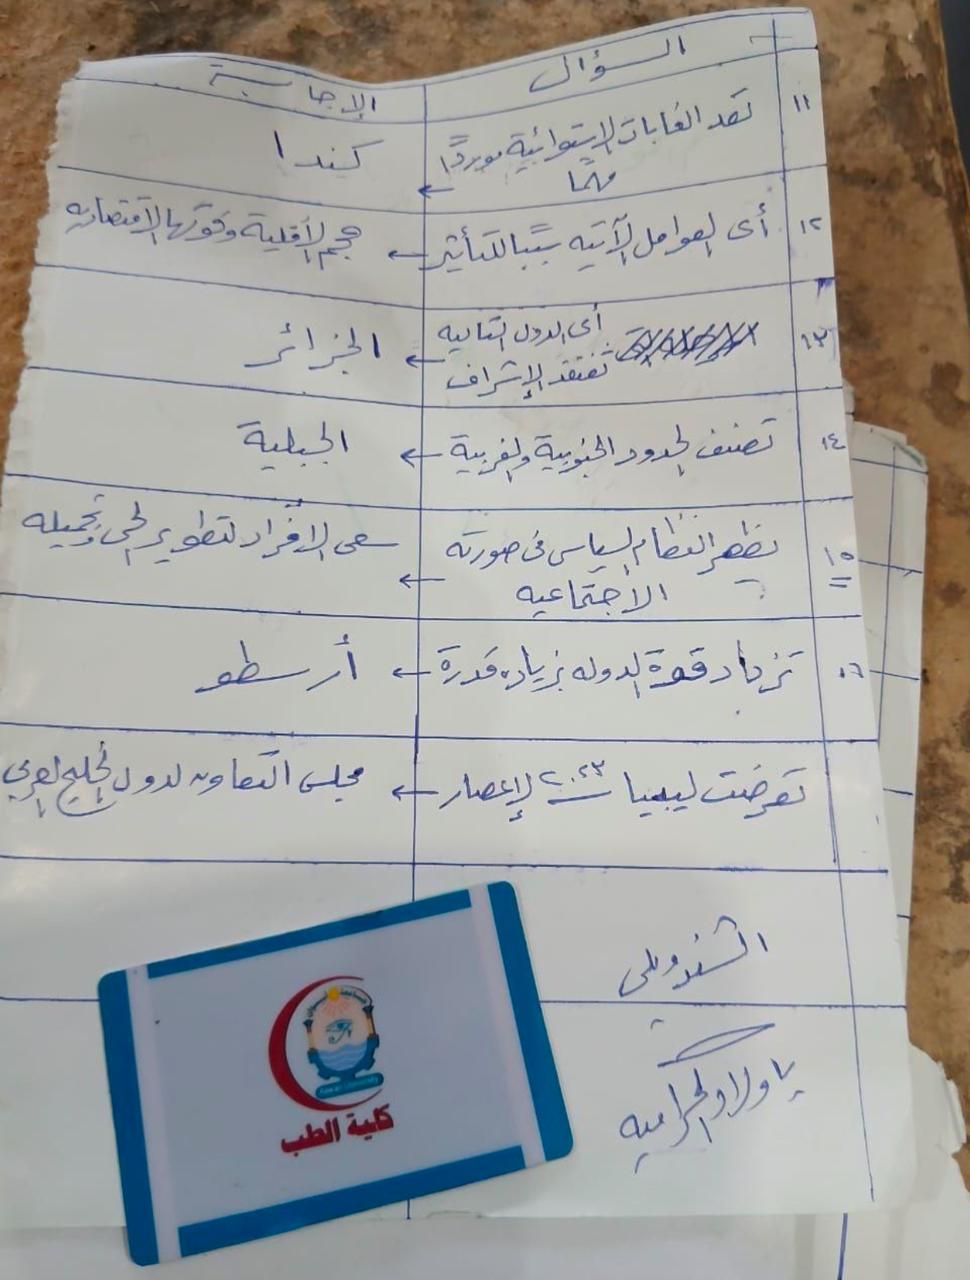 السؤال
الإجابة
١١
تعد الغابات الإستوائية موردًا
مهمًا ←
كندا
١٢
أى العوامل الآتيه سببًا للتأثير ←
حجم الأقلية وقوتها الاقتصاديه
١٣
أى الدول التاليه
تفتقد الإشراف ←
الجزائر
١٤
تصنف الحدود الجنوبية والغربية ←
الجبلية
١٥
تظهر النظام السياسى فى صورته
الاجتماعيه ←
سعى الأفراد لتطوير الحى وتجميله
١٦
تزداد قوة الدوله بزياده قدرة ←
أرسطو
تعرضت ليبيا ٢٠٢٣ لإعصار ←
مجلس التعاون لدول الخليج العربي
الشندويلى
يا ولاد الحراميه
Aswan University
كلية الطب